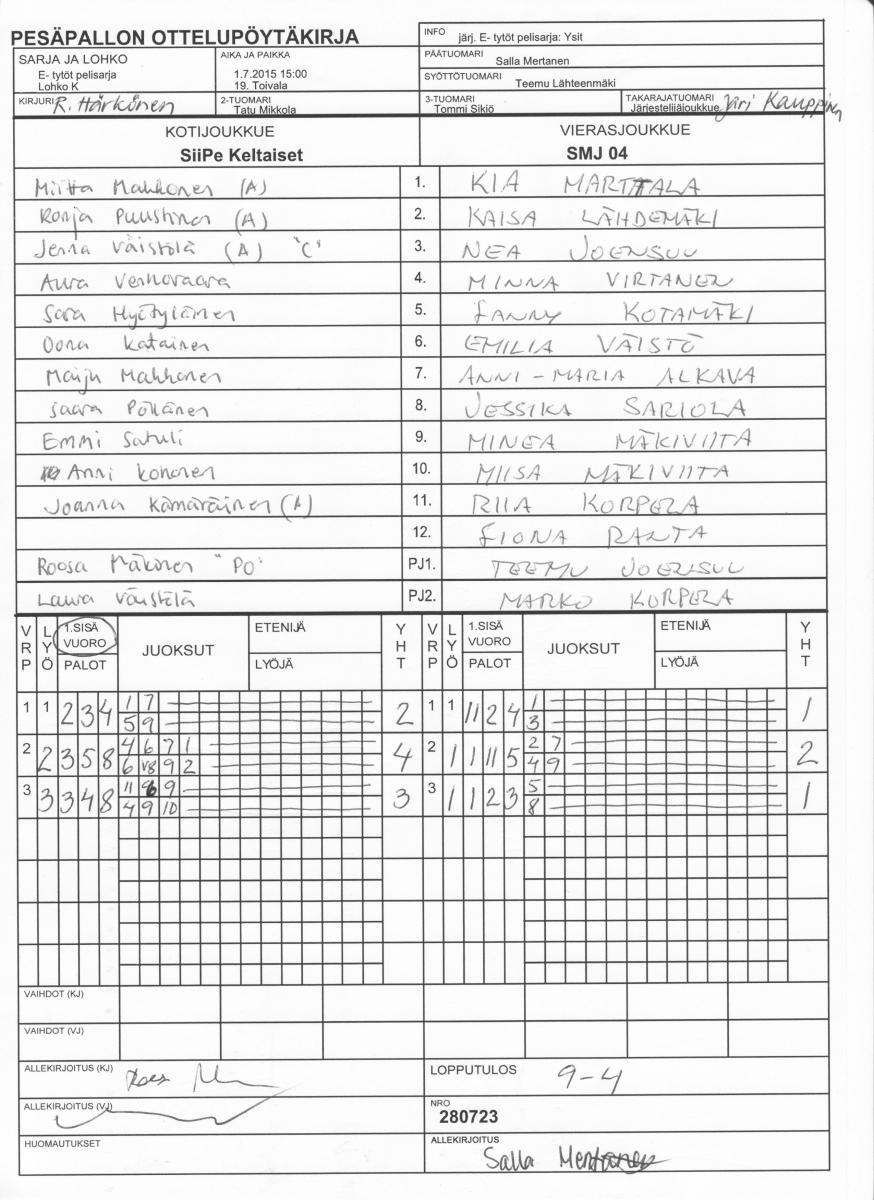 PESÄPALLON OTTELUPÖYTÄKIRJA
INFO järj. E- tytöt pelisarja: Ysit
SARJA JA LOHKO
E- tytöt pelisarja
Lohko K
AIKA JA PAIKKA
1.7.2015 15:00
19. Toivala
PÄÄTUOMARI Salla Mertanen
SYÖTTÖTUOMARI Teemu Lähteenmäki
KIRJURI R. Härkönen
2-TUOMARI
Tatu Mikkola
3-TUOMARI
Tommi Sikiö
TAKARAJATUOMARI Jari Kauppinen
Järjestelijäjoukkue
KOTIJOUKKUE VIERASJOUKKUE
SiiPe Keltaiset SMJ 04
Miitta Mahkonen (A) 1. KIA MARTTALA
Ronja Puustinen (A) 2. KAISA LÄHDEMÄKI
Jenna Väistölä (A) "C" 3. NEA JOENSUU
Aura Venhovaara 4. MINNA VIRTANEN
Sara Hyötyläinen 5. FANNY KOTAMÄKI
Oona Katainen 6. EMILIA VÄISTÖ
Maiju Mahkonen 7. ANNI-MARIA ALKAVA
Saara Pöllänen 8. JESSIKA SARIOLA
Emmi Satuli 9. MINEA MÄKIVIITA
Anni Kohonen 10. MIISA MÄKIVIITA
Joanna Kämäräinen (A) 11. RIIA KORPELA
12. FIONA RANTA
Roosa Mäkinen "PO" PJ1. TEEMU JOENSUU
Laura Väistölä PJ2. MARKO KORPELA
VRP LYÖ 1.SISÄ VUORO PALOT JUOKSUT ETENIJÄ LYÖJÄ YHT VRP LYÖ 1.SISÄ VUORO PALOT JUOKSUT ETENIJÄ LYÖJÄ YHT
1 1 2 3 4 1 7 2 1 1 11 2 4 1 1
5 9 3
2 2 3 5 8 4 6 7 1 4 2 1 1 11 5 2 7 2
6 8 9 2 4 9
3 3 3 4 8 11 6 9 3 3 1 1 2 3 5 1
4 9 10 8
VAIHDOT (KJ)
VAIHDOT (VJ)
ALLEKIRJOITUS (KJ) LOPPUTULOS 9-4
ALLEKIRJOITUS (VJ) NRO
280723
HUOMAUTUKSET ALLEKIRJOITUS
Salla Mertanen